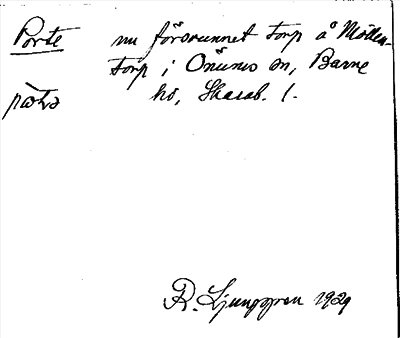 Porte nu försvunnet torp å Möllen-
torp i Önums sn, Barne
hd, Skarab. l.
R. Ljunggren 1929